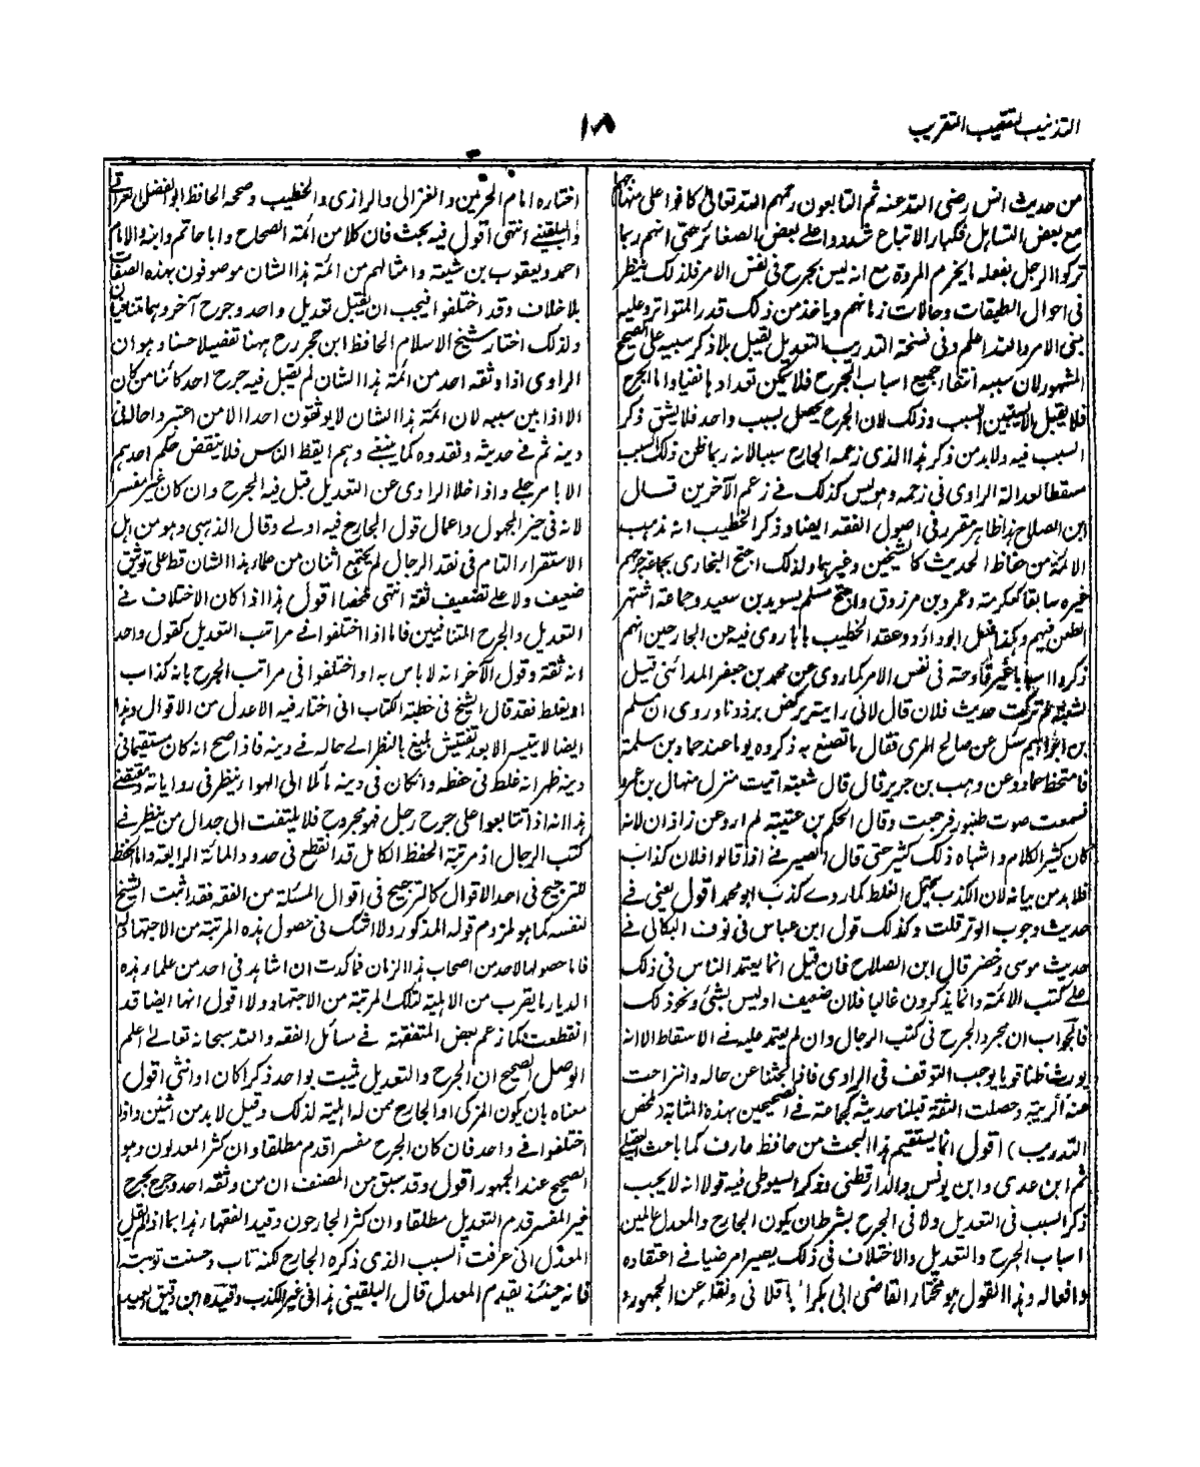 التذنيب لتعقيب التقريب
١٨
من حديث انس رضي الله عنه ثم التابعون رحمهم الله تعالى كانوا على منهاجهم
مع بعض التساهل فكبار الاتباع شددوا على بعض الصغائر حتى انهم ربما
تركوا الرجل بفعله ما يخرم المروة مع انه ليس بجرح في نفس الامر فلذلك ينظر
في احوال الطبقات وحالات زمانهم وياخذ من ذلك قدر المتواتر وعليه
بنى الامر والله اعلم وفي نسخة التدريب التعديل يقبل بلا ذكر سببه على الصحيح
المشهور لان سببه انتفاء جميع اسباب الجرح فلا يمكن تعدادها نفيا واما الجرح
فلا يقبل الا بتبيين السبب وذلك لان الجرح يحصل بسبب واحد فلا يشق ذكر
السبب فيه ولا بد من ذكر هذا الذي زعمه الجارح سببا لانه ربما ظن ذلك السبب
مسقطا لعدالة الراوي في زعمه وهو ليس كذلك في زعم الآخرين قال
ابن الصلاح هذا ظاهر مقرر في اصول الفقه ايضا وذكر الخطيب انه مذهب
الائمة من حفاظ الحديث كالشيخين وغيرهما ولذلك احتج البخاري بجماعة جرحهم
غيره سابقا كعكرمة وعمرو بن مرزوق واحتج مسلم بسويد بن سعيد وجماعة اشتهر
الطعن فيهم وكذا فعل ابو داؤد وعقد الخطيب بابا روى فيه عن الجارحين انهم
ذكروا اسبابا غير قادحة في نفس الامر كما روى عن محمد بن جعفر المدائني قيل
لشعبة لم تركت حديث فلان قال لاني رايته يركض برذونا وروى ان مسلم
بن ابراهيم سئل عن صالح المري فقال ما تصنع به ذكروه يوما عند حماد بن سلمة
فامتخط حماد وعن وهب بن جرير قال قال شعبة اتيت منزل منهال بن عمرو
فسمعت صوت طنبور فرجعت وقال الحكم بن عتيبة لم ارو عن زاذان لانه
كان كثير الكلام واشباه ذلك كثير حتى قال الصيرفي اذا قالوا فلان كذاب
فلا بد من بيانه لان الكذب يحتمل الغلط كما روي كذب ابو محمد اقول يعني في
حديث وجوب الوتر قلت وكذلك قول ابن عباس في نوف البكالي في
حديث موسى وخضر قال ابن الصلاح فان قيل انما يعتمد الناس في ذلك
على كتب الائمة وانما يذكرون غالبا فلان ضعيف او ليس بشئ ونحو ذلك
فالجواب ان مجرد الجرح في كتب الرجال وان لم يعتمد عليه في الاسقاط الا انه
يورث ظنا قويا يوجب التوقف في الراوي فاذا بحثنا عن حاله وانزاحت
عنه الريبة وحصلت الثقة قبلنا حديثه كجماعة في الصحيحين بهذه المثابة (ملخص
التدريب) اقول انما يستقيم هذا البحث من حافظ عارف كما باحث العقيلي
ثم ابن عدي وابن يونس والدارقطني وذكر السيوطي فيه قولا انه لا يجب
ذكر السبب في التعديل ولا في الجرح بشرط ان يكون الجارح والمعدل عالمين
اسباب الجرح والتعديل والاختلاف في ذلك بصيرا مرضيا في اعتقاده
وافعاله وهذا القول هو مختار القاضي ابي بكر الباقلاني ونقله عن الجمهور و
اختاره امام الحرمين والغزالي والرازي والخطيب وصححه الحافظ ابو الفضل العراقي
والبلقيني انتهى اقول فيه بحث فان كلا من ائمة الصحاح وابا حاتم وابنه والامام
احمد ويعقوب بن شيبة وامثالهم من ائمة هذا الشان موصوفون بهذه الصفات
بلا خلاف وقد اختلفوا فيجب ان يقبل تعديل واحد وجرح آخر وهما متنافيان
ولذلك اختار شيخ الاسلام الحافظ ابن حجر رح ههنا تفصيلا حسنا وهو ان
الراوي اذا وثقه احد من ائمة هذا الشان لم يقبل فيه جرح احد كائنا من كان
الا اذا بين سببه لان ائمة هذا الشان لا يوثقون احدا الا من اعتبروا حاله في
دينه ثم في حديثه ونقدوه كما ينبغي وهم ايقظ الناس فلا ينقض حكم احدهم
الا بامر جلي واذا خلا الراوي عن التعديل قبل فيه الجرح وان كان غير مفسر
لانه في حيز المجهول واعمال قول الجارح فيه اولى وقال الذهبي وهو من اهل
الاستقراء التام في نقد الرجال لم يجتمع اثنان من علماء هذا الشان قط على توثيق
ضعيف ولا على تضعيف ثقة انتهى ملخصا اقول هذا اذا كان الاختلاف في
التعديل والجرح المتنافيين فاما اذا اختلفوا في مراتب التعديل كقول واحد
انه ثقة وقول الآخر انه لا باس به او اختلفوا في مراتب الجرح بانه كذاب
او يغلط فقد قال الشيخ في خطبة الكتاب اني اختار فيه الاعدل من الاقوال وهذا
ايضا لا يتيسر الا بعد تفتيش بليغ بالنظر الى حاله في دينه فاذا صح انه كان مستقيما في
دينه ظهر انه غلط في حفظه وان كان في دينه مائلا الى الهوا ينظر في رواياته وتنقضي
هذا انه اذا تتابعوا على جرح رجل فهو مجروح فلا يلتفت الى جدال من ينظر في
كتب الرجال اذ مرتبة الحفظ الكامل قد انقطع في حدود المائة الرابعة واما الحفظ
للترجيح في احد الاقوال كالترجيح في اقوال المسئلة من الفقه فقد اثبت الشيخ
لنفسه كما هو ملزوم قوله المذكور ولا شك في حصول هذه المرتبة من الاجتهاد له
فاما حصولها لاحد من اصحاب هذا الزمان فما كدت ان اشاهد في احد من علماء هذه
الديار ما يقرب من الاهلية لتلك المرتبة من الاجتهاد ولا اقول انها ايضا قد
انقطعت كما زعم بعض المتفقهة في مسائل الفقه والله سبحانه تعالى اعلم
الوصل الصحيح ان الجرح والتعديل يثبت بواحد ذكرا كان او انثى اقول
معناه بان يكون المزكي او الجارح ممن له اهلية لذلك وقيل لا بد من اثنين واذا
اختلفوا في واحد فان كان الجرح مفسرا قدم مطلقا وان كثر المعدلون وهو
الصحيح عند الجمهور اقول وقد سبق من المصنف ان من وثقه احد وجرح بجرح
غير المفسر قدم التعديل مطلقا وان كثر الجارحون وقيد الفقهاء هذا بما اذا لم يقل
المعدل اني عرفت السبب الذي ذكره الجارح لكنه تاب وحسنت توبته
فانه حينئذ يقدم المعدل قال البلقيني هذا في غير الكذب وقيده ابن دقيق العيد